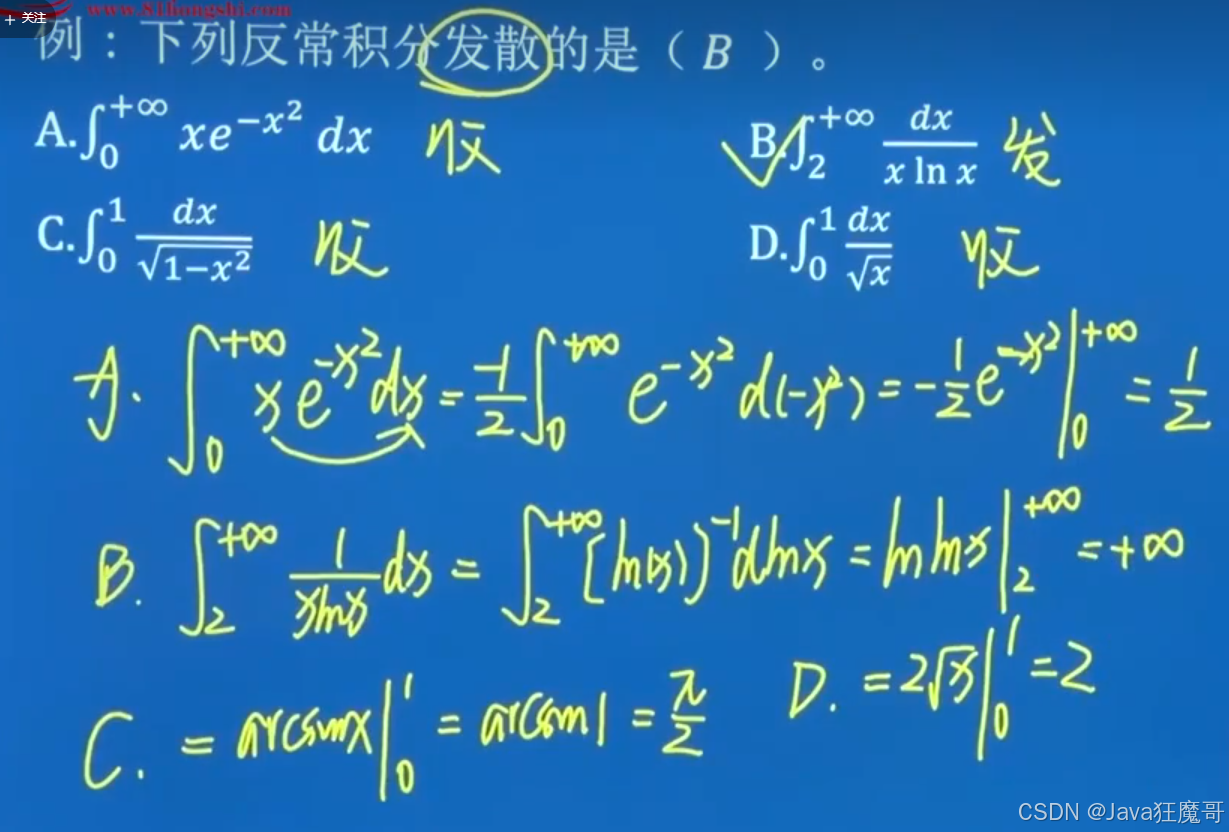 + 关注
www.81hongshi.com
例：下列反常积分发散的是（ B ）。
A.∫₀^{+∞} xe^{−x²} dx 收 B.∫₂^{+∞} dx/(x ln x) 发
C.∫₀¹ dx/√(1−x²) 收 D.∫₀¹ dx/√x 收
A. ∫₀^{+∞} xe^{-x²}dx = -1/2 ∫₀^{+∞} e^{-x²} d(-x²) = -1/2 e^{-x²}|₀^{+∞} = 1/2
B. ∫₂^{+∞} 1/(xlnx) dx = ∫₂^{+∞} [ln(x)]^{-1} dlnx = ln lnx|₂^{+∞} = +∞
C. = arcsinx|₀¹ = arcsin1 = π/2 D. = 2√x|₀¹ = 2
CSDN @Java狂魔哥